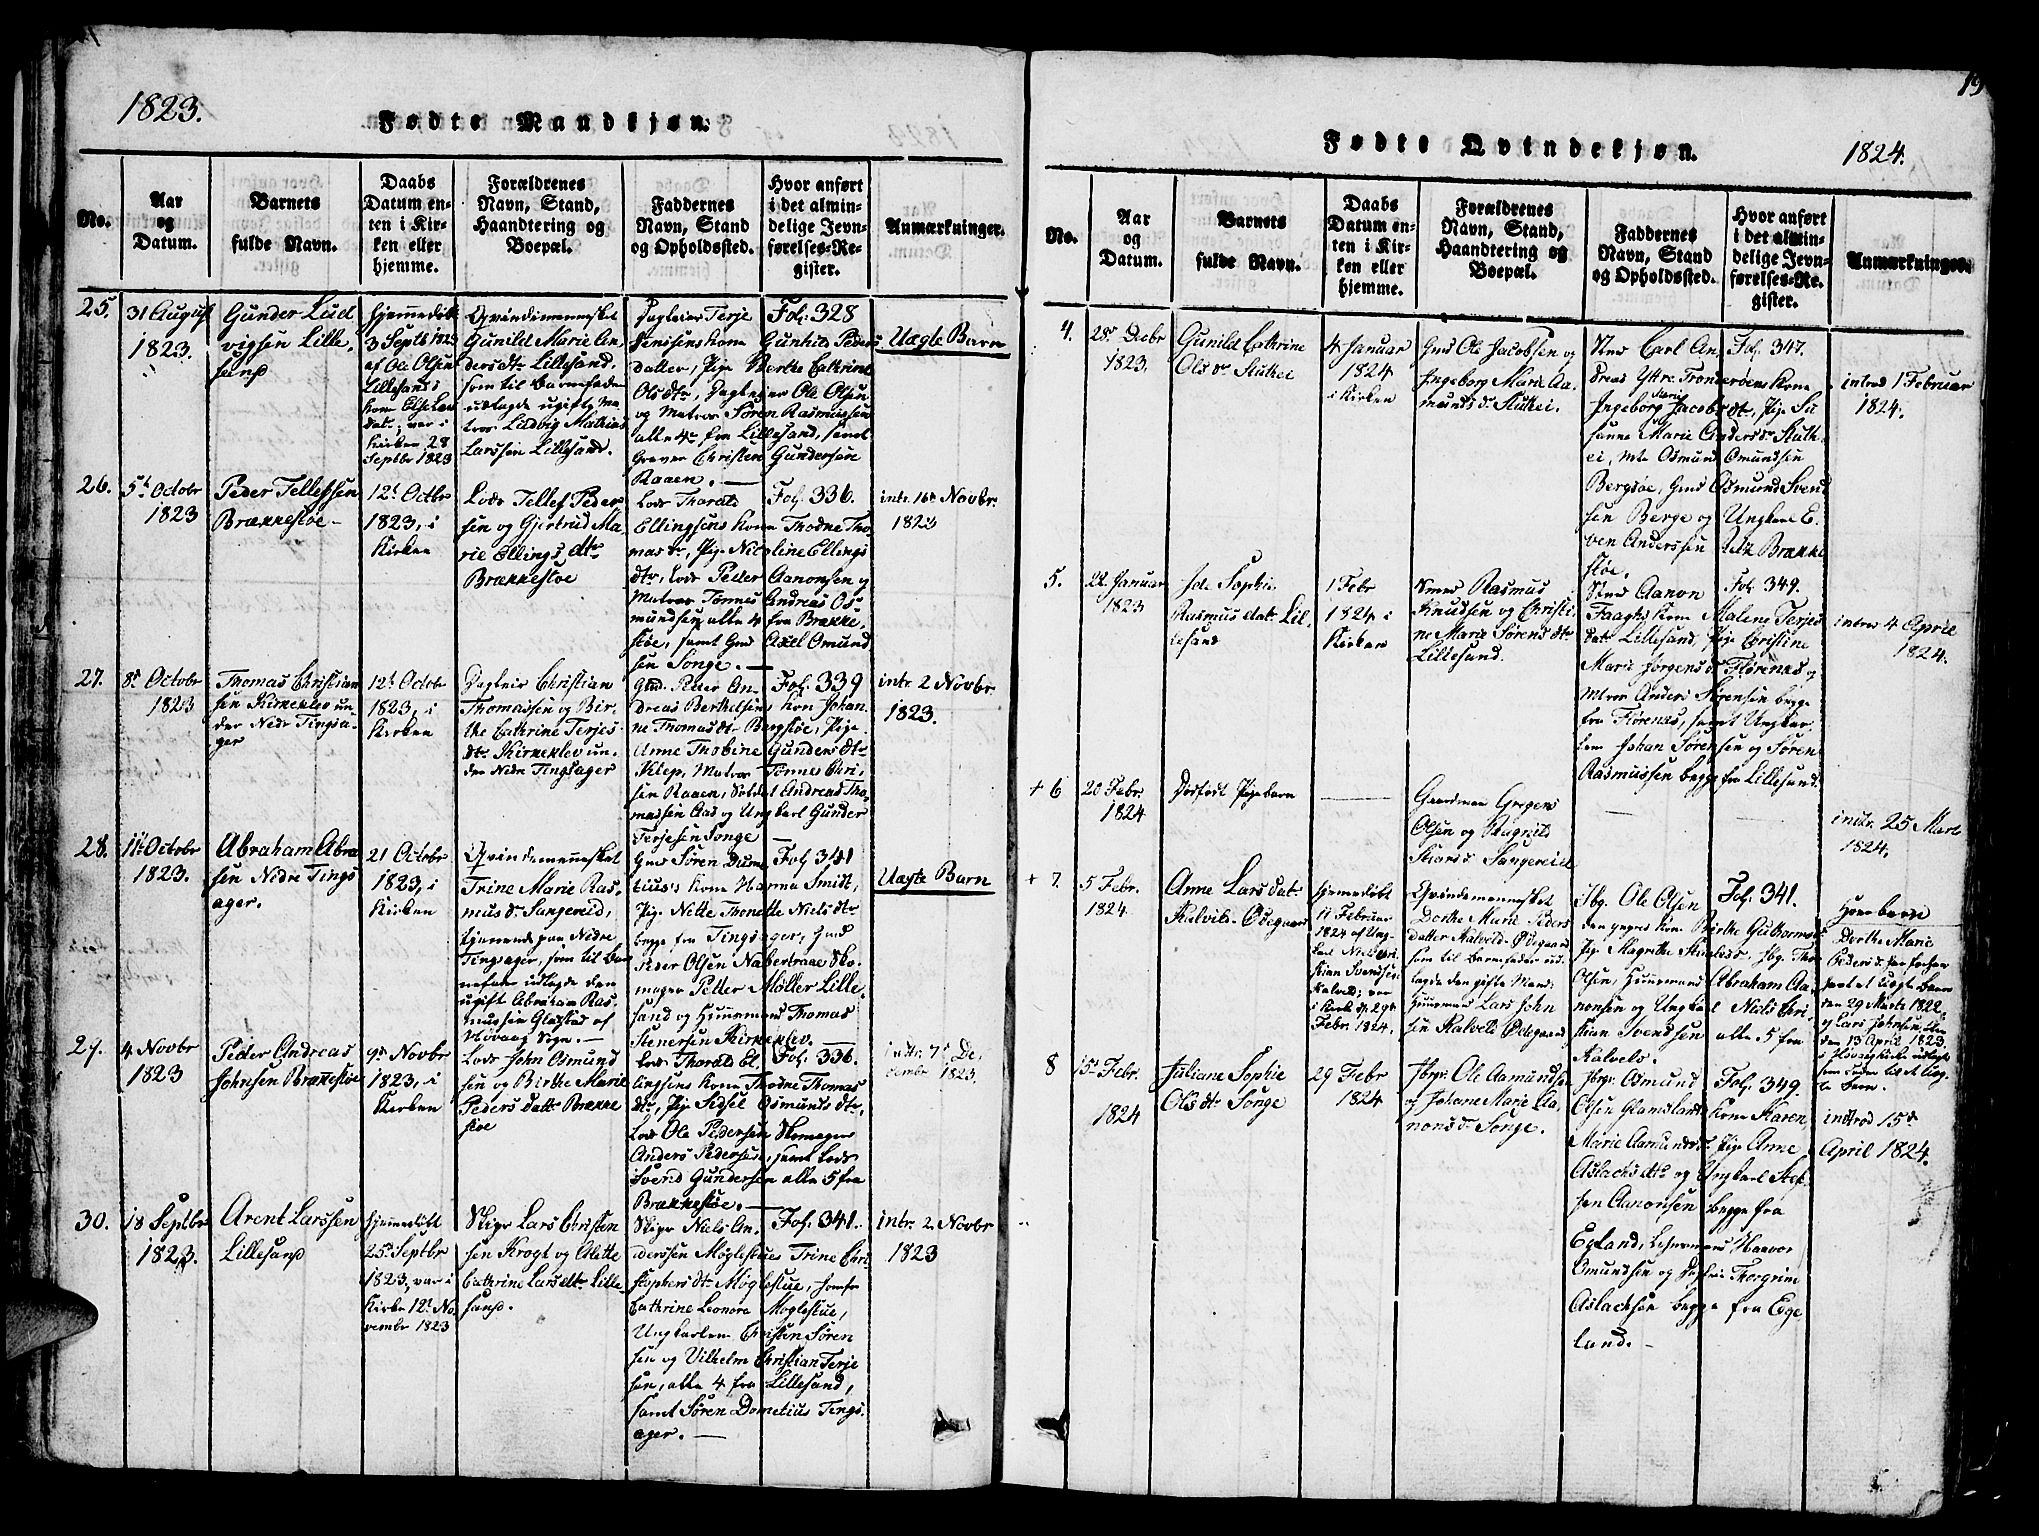 1823.
Fødte Mandkjøn.
No.
Aar
og
Datum.
Barnets
fulde Navn.
Daabs
Datum en-
ten i Kir-
ken eller
hjemme.
Forældrenes
Navn, Stand,
Haandtering og
Boepæl.
Faddernes
Navn, Stand
og Opholdssted.
Hvor anført
i det almin-
delige Jevn-
førelses-Re-
gister.
Anmærkninger.
25.
31 August
1823.
Gunder Lud
vigsen Lille,
sand
hjemmedøbt
3 Septb 1823
af Ole Olsen
Lillesands
Kone Else Lars
datr, var i
Kirken 28
Septbr 1823
Qvindemennesket
Gunild Marie An,
dersdtr Lillesand,
som til Barnefader
udlagde ugifte Ma,
tros Ludvig Mathias
Larssen Lillesand.
Dagleier Terje
Jenssens Kone Gunhild Peders
datter, Pige Berthe Cathrine
Olsdtr, Dagleier Ole Olsen
og Matros Søren Rasmussen
alle 4re fra Lillesand, samt
Graver Christen Gundersen
Raaen.
Fol. 328
Uægte Barn
26.
5t Octobr
1823
Peder Tellefsen
Brækkestøe
12t Octbr
1823, i
Kirken
Lods Tellef Peder
sen og Gjertrud Ma,
rie Ellings dtr
Brækkestøe
Lods Tharald
Ellingsens Kone Thodne Tho,
mas dtr, Pige Nicoline Ellings
dtr, Lods Peder Aanonsen og
Matros Tønnes Andreas Os,
mundsen alle 4 fra Brække,
støe, samt Gmd Axel Omund
sen Songe.
Fol. 336.
intr. 16r Novbr.
1823
27.
8r Octobr
1823
Thomas Christian
sen Kirkeklev un,
der Nedr Tingsa-
ger
12t Octobr
1823, i
Kirken
Dagleier Christian
Thomassen og Bir,
the Cathrine Terjes
dtr Kirkeklev un,
der Nedr Tingsager
Gmd. Peder An,
dreas Berthelsens Kon Johan
ne Thomasdtr Bergstøe, Pige
Anne Thobine Gunders dtr
Kelep, Matros Tønnes Chri,
sen Raaen, Soldat Andreas Tho,
massen Aas og Ungkarl Gunder
Terjesen Songe
Fol. 339
intr 2 Novbr
1823.
28.
11t Octobr
1823.
Abraham Abra
sen Nedre Tings
ager.
21 Octobr
1823, i
Kirken
Qvindemennesket
Trine Marie Ras,
mus dr Sangereid,
tjenende paa Nedre
Tingsager, som til Bar
nefader udlagde den
ugift Abraham Ras,
mussen Glastad af
Høvaag Sogn.
Gmd Søren Dum,
tius's Kone Hanna Smidt,
Pige Nette Thonette Niels dtr
begge fra Tingsager, Gmd
Peder Olsen Nabertraae Sko,
mager Petter Møller Lille,
sand og Huusmand Thomas
Stenersen Kirkeklev.
Fol 341
Uægte Barn
29.
4 Novbr
1823
Peder Andreas
Johnsen Brækkestøe
9r Novbr
1823, i
Kirken
Lods John Osmund
sen og Birthe Marie
Peders datr Brække
støe
Lods Tharald El,
lingsens Kone Thodne Thomas
dtr, Pige Sidsel Osmunds dtr,
Lods Ole Pedersen Skomager
Anders Pedersen, samt Lods
Svend Gundersen alle 5 fra
Brækkestøe.
Fol. 336.
intr. 7r De,
cembr 1823.
30.
18 Septbr
1823.
Arent Larssen
Lillesand
hjemmedøbt
25r Septbr
1823, var i
Kirke 12t No
vembr 1823
Skipr Lars Christen
sen Krogt og Alette
Cathrine Larsdtr Lille,
sand.
Skipr Niels An,
derssen Møglestue, Trine Chri
stophers dtr Møglestue, Jomfru
Cathrine Leonora Møglestue,
Ungkarlen Christen Søren
sen og Vilhelm Christian Terje
sen, alle 4 fra Lillesand,
samt Søren Dometius Tings,
ager.
Fol. 341.
intr. 2 Novbr
1823
19
Fødte Qvindekjøn.
1824.
No.
Aar
og
Datum.
Barnets
fulde Navn.
Daabs
Datum en-
ten i Kir-
ken eller
hjemme.
Forældrenes
Navn, Stand,
Haandtering og
Boepæl.
Faddernes
Navn, Stand
og Opholdssted.
Hvor anført
i det almin-
delige Jevn-
førelses-Re-
gister.
Anmærkninger.
4.
28r Decbr
1823.
Gunild Cathrine
Ols dr Stutkei
4 Januar
1824
i Kirken
Gmd Ole Jacobsen og
Ingeborg Marie Aa,
munds dr Stutkei.
Carl An,
dreas Yttre Tronderøens Kone
Ingeborg Marie Jacobs dtr, Pige Su
sanne Marie Anders dr Stutk
ei, Osmund Omundsen
Bergsøe, Gmd Osmund Svend
sen Berge og Ungkarl E,
ven Anderssen Brække
støe.
Fol. 347.
introd 1 Februar
1824.
5.
22 Januar
1823
Sophie
Rasmus datr Lil,
lesand
1 Febr
1824 i
Kirken
Rasmus
Knudsen og Christi
ne Marie Sørens dtr
Lillesand.
Aanon
Faagts Kone Malene Terjes
datr Lillesand, Pige Christine
Marie Jørgens dr Florenes og
Anders Sørensen begge
fra Florenes, samt Ungkar
len Johan Sørensen og Søren
Rasmussen begge fra Lillesand.
Fol. 349.
introd 4 April
1824.
+ 6
20 Febr.
1824
Dødfødt Pigebarn
Gaardmand Gregers
Olsen og
Sangereid
intr. 25 Marts
1824.
+ 7.
5 Febr.
1824.
Anne Lars datr
Kalvild-Ødegaard
hjemmedøbt
11 Februar
1824 af Ung,
karl Niels Chri,
stian Svendsen
Kalvild; var
i Kirke d. 29r
Febr. 1824.
Qvindemennesket
Dorthe Marie Peders
datter Kalvild-Ødegaard
som til Barnefader ud,
lagde den gifte Mand
Huusmand Lars John
sen Kalvild Ødegaard
Ole Olsen
den yngres Kone Birthe Guttormsdr
Pige Magrethe
Olsen, Huusmand Abraham Aa,
nonsen og Ungkarl Niels Chri,
stian Svendsen alle 5 fra
Kalvild.
Fol. 341.
Dorthe Marie
Peders dr har forhen
havt et uægte Barn
den 29 Marts 1822,
og Lars Johnsen blev
den 13 April 1823
i Høvaag Kirke udlagt
som Fader til et uæg,
te Barn.
8
15r Febr.
1824
Juliane Sophie
Ols dtr Songe
29 Febr
1824
Ole Aamundse
og Johane Marie Aa,
nons dr Songe.
Osmund
Olsen Glamslands Kone Karen
Marie Aamunds dr. Pige Anne
Aslachs dtr og Ungkarl Stef
fen Aanonsen begge fra
Egland, Lehnsmand Haavor
Omundsen og Thorgrim
Aslachsen begge fra Ege
land.
Fol. 349.
introd 15r
April 1824.